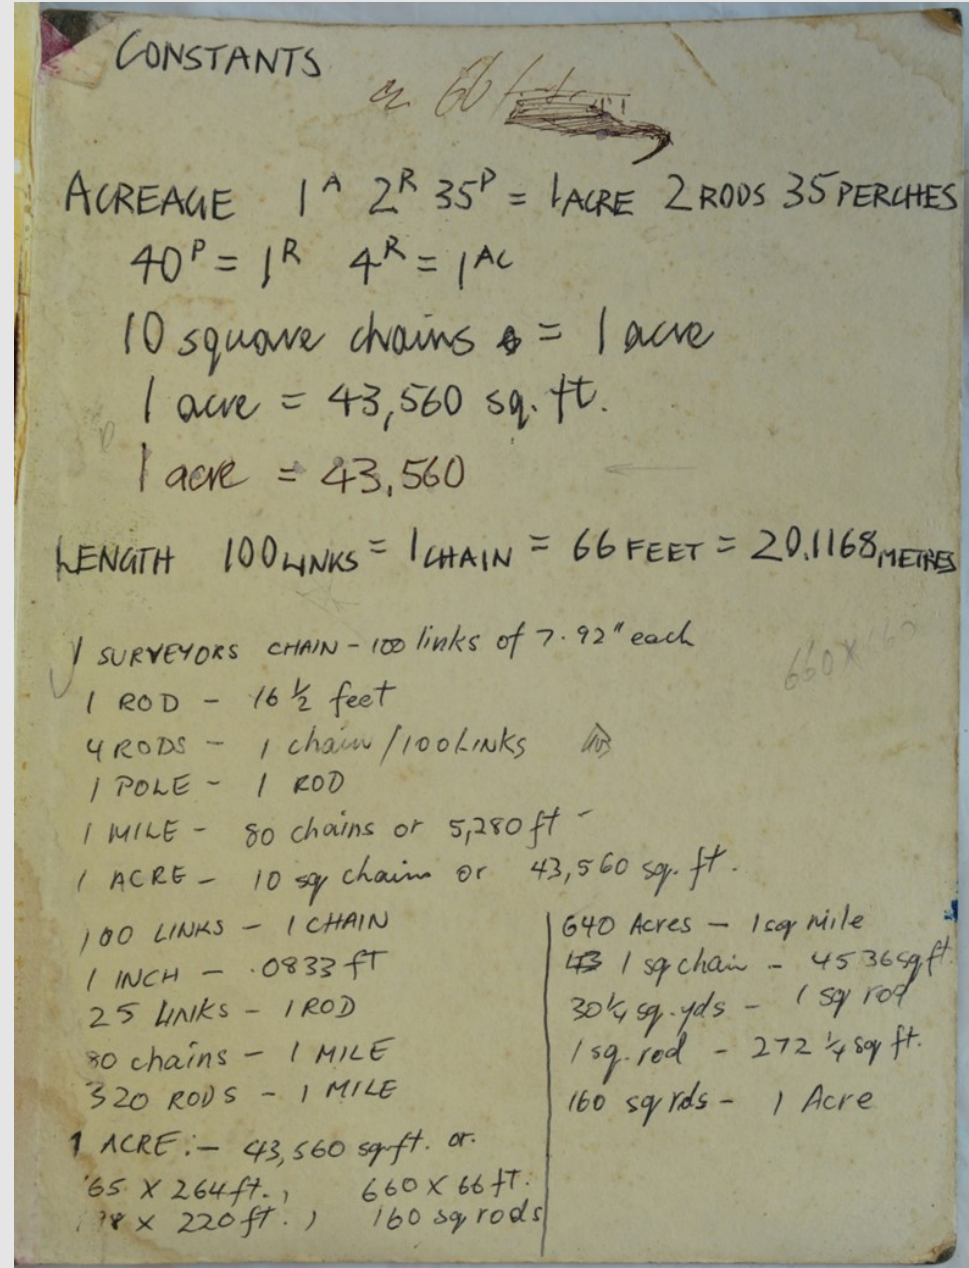 CONSTANTS
or 66
ACREAGE 1 A 2 R 35 P = 1 ACRE 2 RODS 35 PERCHES
40 P = 1 R 4 R = 1 AC
10 square chains = 1 acre
1 acre = 43,560 sq. ft.
1 acre = 43,560
LENGTH 100 LINKS = 1 CHAIN = 66 FEET = 20.1168 METRES
660 X
1 SURVEYORS CHAIN - 100 links of 7.92" each
1 ROD - 16 ½ feet
4 RODS - 1 chain / 100 LINKS
1 POLE - 1 ROD
1 MILE - 80 chains or 5,280 ft -
1 ACRE - 10 sq chains or 43,560 sq. ft.
100 LINKS - 1 CHAIN
1 INCH - .0833 ft
25 LINKS - 1 ROD
80 chains - 1 MILE
320 RODS - 1 MILE
1 ACRE :- 43,560 sq. ft. or.
65 X 264 ft., 660 X 66 ft.
98 x 220 ft., 160 sq rods
640 Acres - 1 sq mile
1 sq chain - 4536 sq ft.
30 ¼ sq. yds - 1 sq rod
1 sq. rod - 272 ¼ sq ft.
160 sq rds - 1 Acre